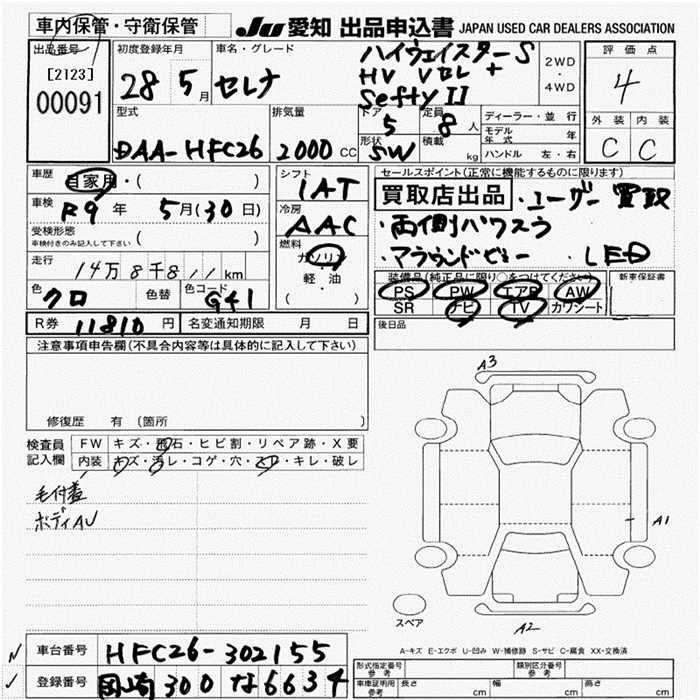 車内保管・守衛保管
JU 愛知 出品申込書 JAPAN USED CAR DEALERS ASSOCIATION
出品番号
[2123]
00091
初度登録年月
28 5月
車名・グレード
セレナ
ハイウェイスターS
HV Vセレ +
Sefty II
2WD
・
4WD
評価点
4
外装 内装
C C
型式
DAA-HFC26
排気量
2000 CC
ドア
5
形状
SW
定員
8人
積載
kg
ディーラー・並行
モデル年式 年
ハンドル 左・右
車歴
自家用・( )
車検
R9年 5月(30日)
受検形態
車検付きのみ記入して下さい ( )
走行
14万8千8,, km
色
クロ
色替
色コード
G41
R券 11810円 名変通知期限 月 日
シフト
IAT
冷房
AAC
燃料
ガソリン
軽・油
( ・ )
セールスポイント(正常に機能するものに限ります)
買取店出品 ・ユーザー買取
・両側パワスラ
・アラウンドビュー ・LED
装備品(純正品に限り○をつけてください)
PS PW エアB AW
SR ナビ TV カワシート
新車保証書
後日品
注意事項申告欄(不具合内容等は具体的に記入して下さい)
修復歴 有 〔箇所 〕
検査員記入欄
FW キズ・飛石・ヒビ割・リペア跡・X要
内装 キズ・汚レ・コゲ・穴・スレ・キレ・破レ
毛付着
ボディAU
A3
A1
A2
スペア
A-キズ E-エクボ U-凹み W-補修跡 S-サビ C-腐食 XX-交換済
車台番号 HFC26-302155
登録番号 岡崎 300 な 6634
型式指定番号
参考
類別区分番号
参考
車庫証明用
参考
長さ cm 幅 cm 高さ cm